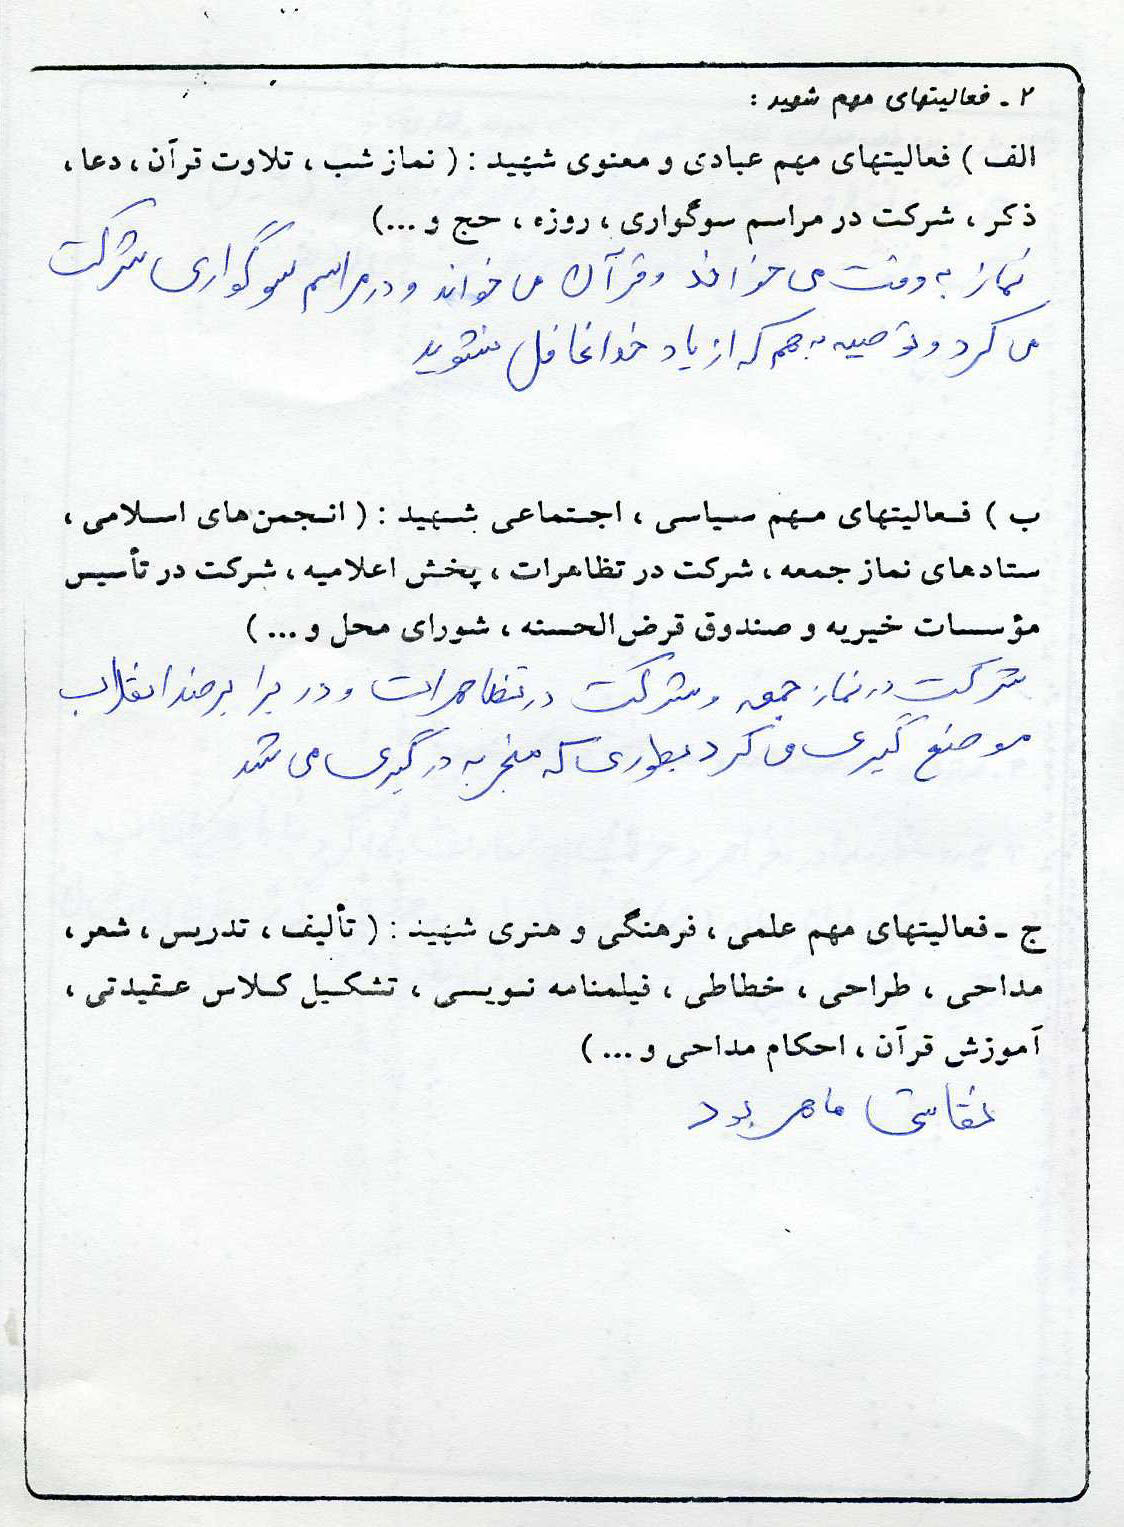 ۲ ـ فعالیتهای مهم شهید :
الف ) فعالیتهای مهم عبادی و معنوی شهید : ( نماز شب ، تلاوت قرآن ، دعا ،
ذکر ، شرکت در مراسم سوگواری ، روزه ، حج و ...)
نماز به وقت می خواند و قرآن می خواند و در مراسم سوگواری شرکت
می کرد و توصیه به هم که از یاد خدا غافل نشوید
ب ) فعالیتهای مهم سیاسی ، اجتماعی شهید : ( انجمن‌های اسلامی ،
ستادهای نماز جمعه ، شرکت در تظاهرات ، پخش اعلامیه ، شرکت در تأسیس
مؤسسات خیریه و صندوق قرض‌الحسنه ، شورای محل و ... )
شرکت در نماز جمعه و شرکت در تظاهرات و در برابر ضد انقلاب
موضع گیری می کرد بطوری که منجر به درگیری می شد
ج ـ فعالیتهای مهم علمی ، فرهنگی و هنری شهید : ( تألیف ، تدریس ، شعر ،
مداحی ، طراحی ، خطاطی ، فیلمنامه نویسی ، تشکیل کلاس عقیدتی ،
آموزش قرآن ، احکام مداحی و ... )
نقاشی ماهر بود